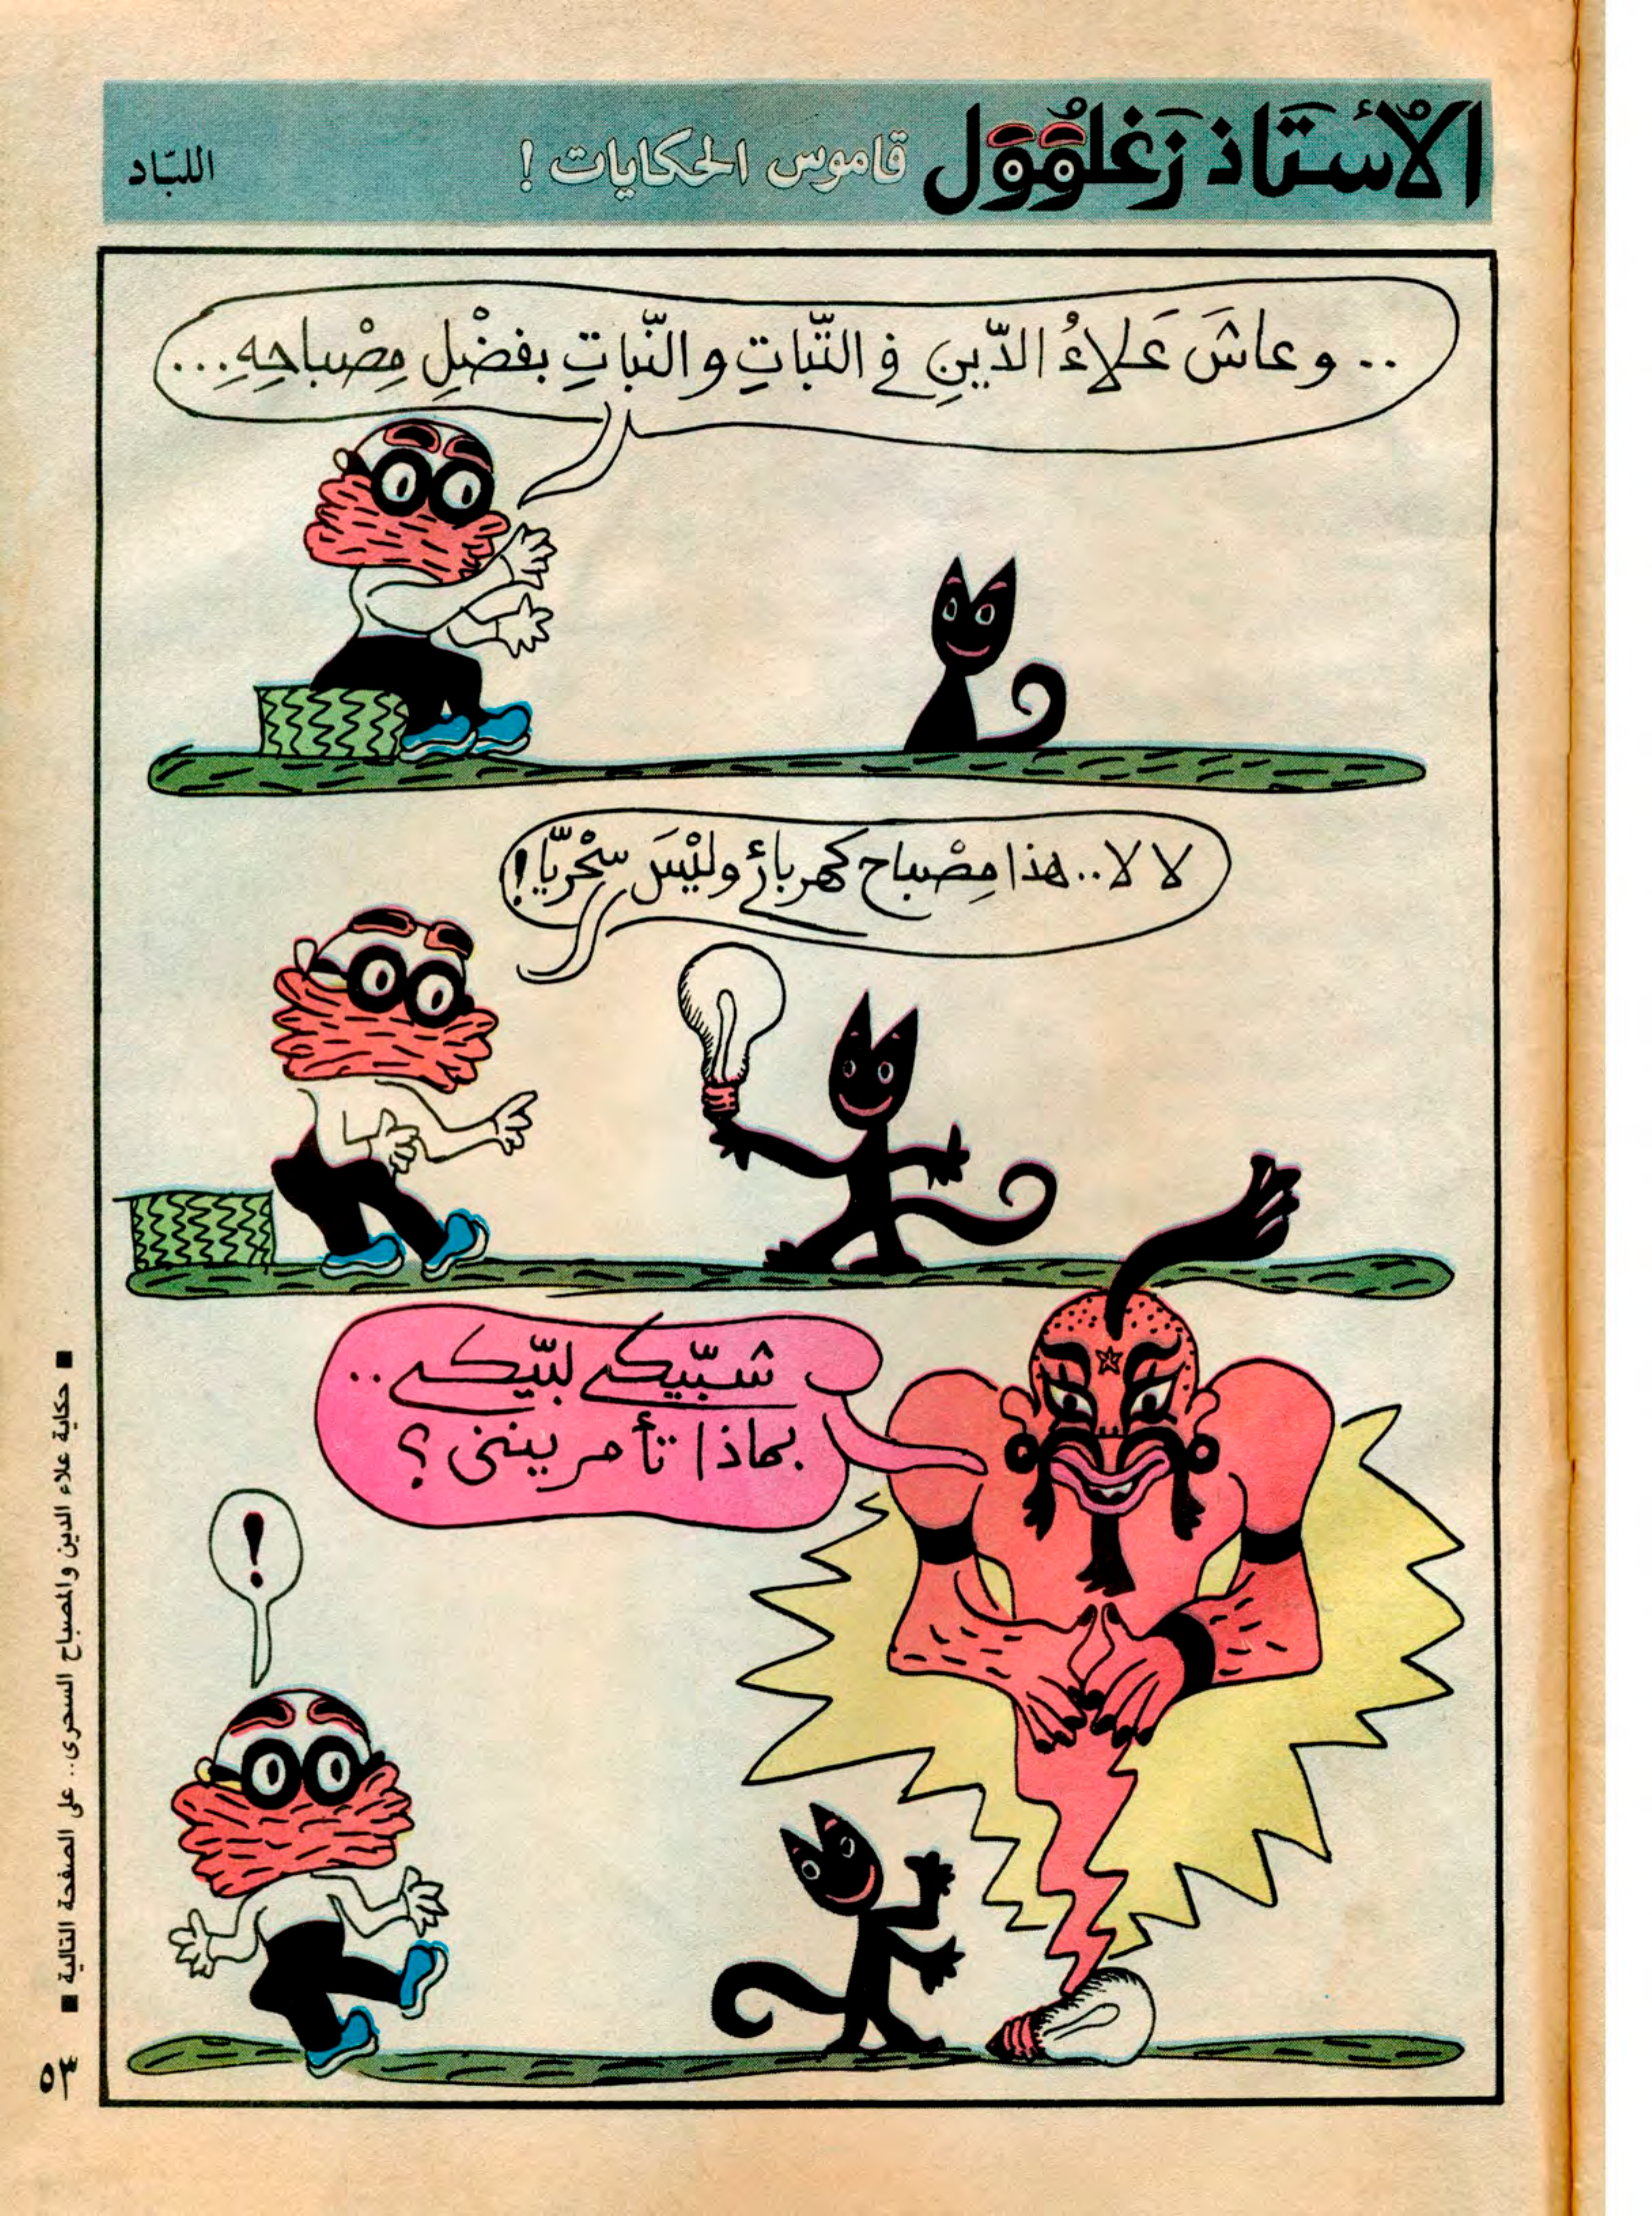 الأُستَاذ زَغلُوُّول قاموس الحكايات !
اللبّاد
.. و عاشَ عَلاءُ الدّينِ في التَّباتِ و النَّباتِ بفضْلِ مِصْباحِهِ...
لا لا.. هذا مِصْباح كهربائي وليْسَ سِحْريًّا !
شبّيك لبّيك..
بماذا تأمرينني ؟
!
■ حكاية علاء الدين والمصباح السحرى.. على الصفحة التالية ■